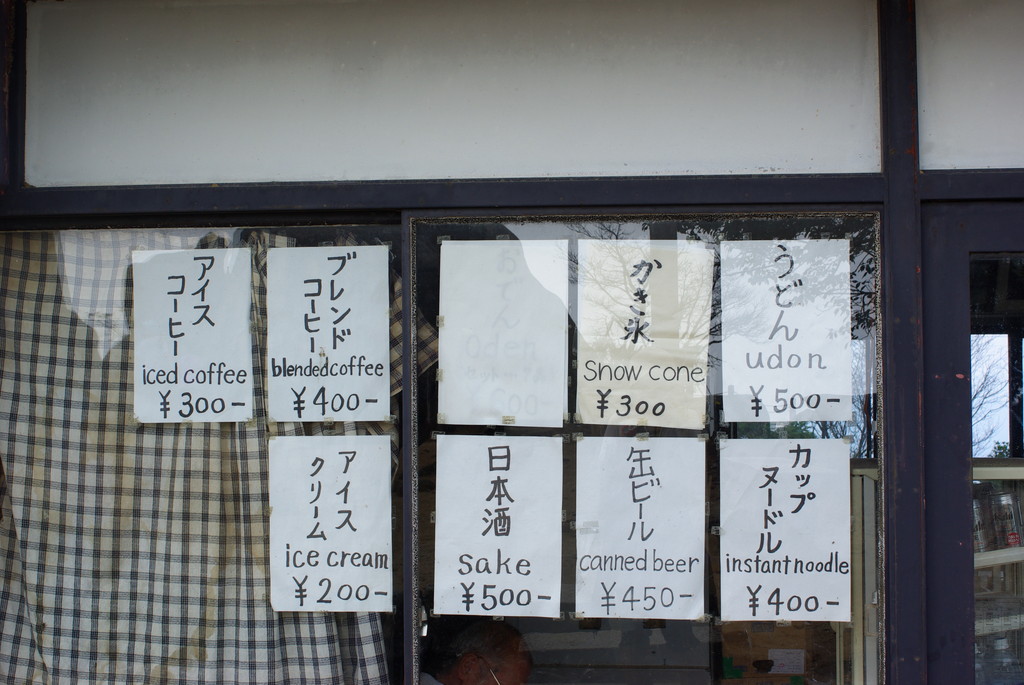 アイス
コーヒー
iced coffee
¥300-
ブレンド
コーヒー
blended coffee
¥400-
おでん
Oden
かき氷
Snow cone
¥300
うどん
udon
¥500-
アイス
クリーム
ice cream
¥200-
日本酒
sake
¥500-
缶ビール
canned beer
¥450-
カップ
ヌードル
instant noodle
¥400-